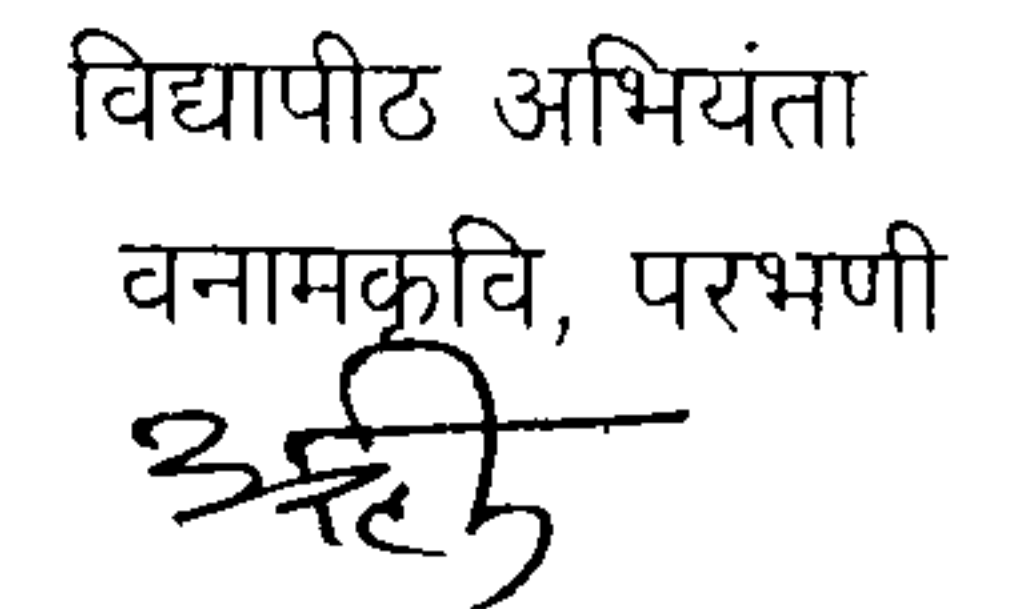 विद्यापीठ अभियंता
वनामकृवि, परभणी